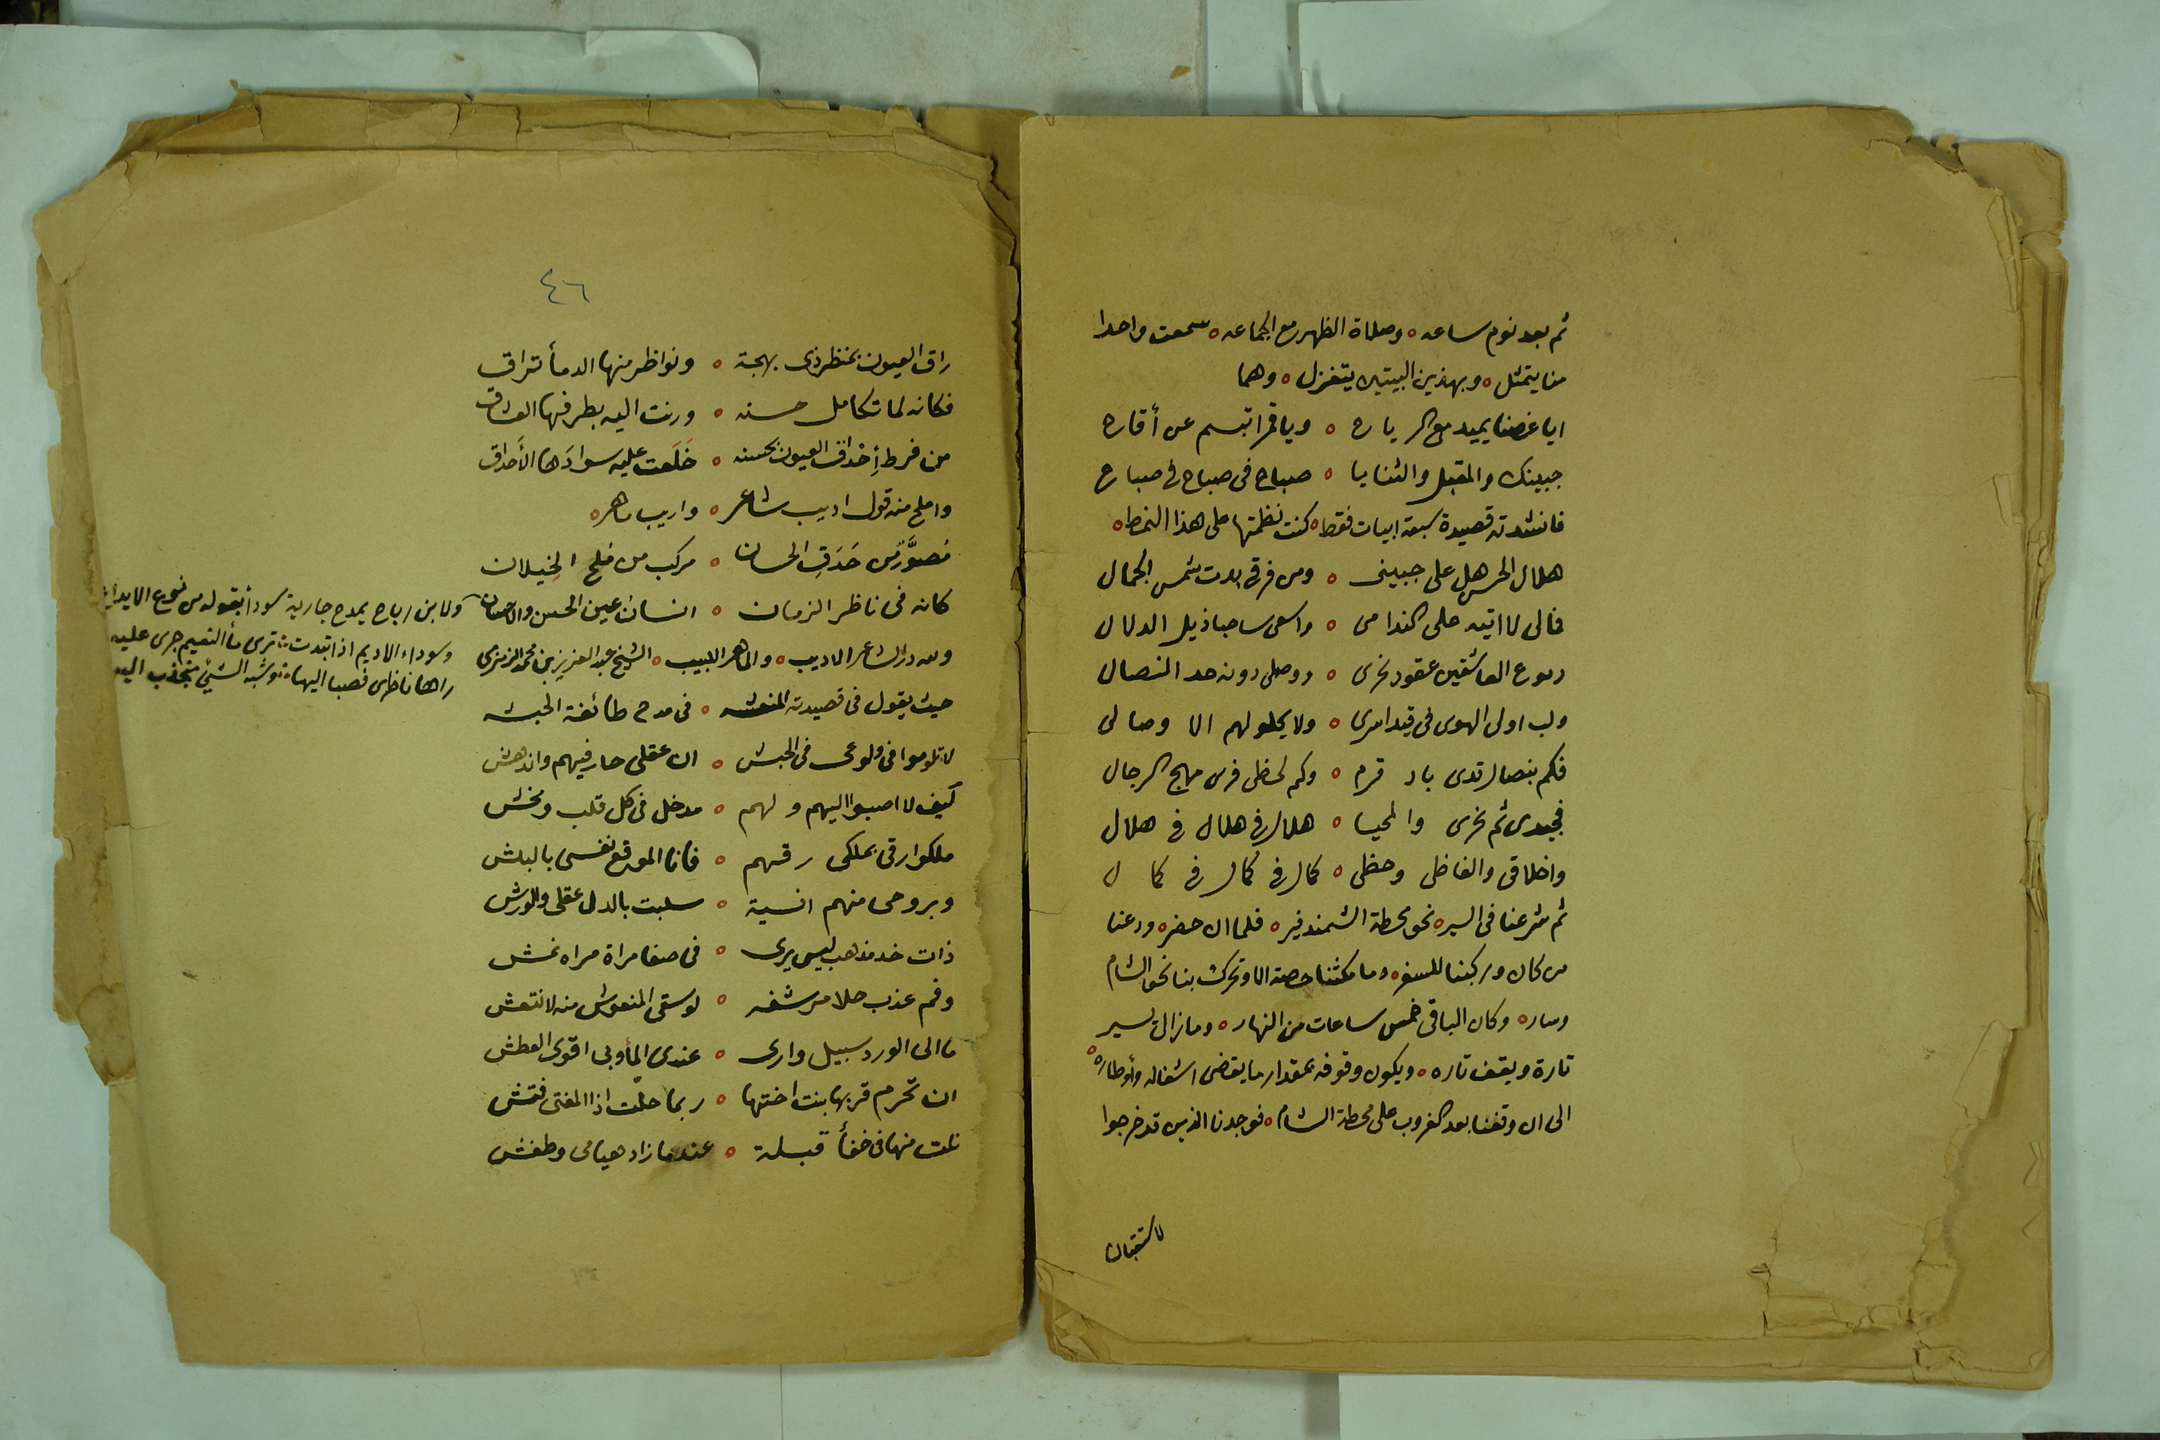 ثم بعد نوم ساعه ٥ وصلاة الظهر مع الجماعه ٥ سمعت واحدا
منا يتمثل ٥ وبهذين البيتين يتغزل ٥ وهما
ايا غصنا يميد مع الرياح ٥ ويا قمرا تبسم عن أقاح
جبينك والمقبل والثنايا ٥ صباح فى صباح فى صباح
فانشدته قصيدة سبعة ابيات فقط ٥ كنت نظمتها على هذا النمط ٥
هلال الحسن هل على جبينى ٥ ومن فرقى بدت شمس الجمال
فمالى لا اتيه على الندامى ٥ واسعى ساحبا ذيل الدلال
دموع العاشقين عقود نحرى ٥ ووصلى دونه حد النصال
ولب اولى الهوى فى قيد اسرى ٥ ولا يحلو لهم الا وصالى
فكم بنصال قدى باد قرم ٥ وكم لحظى فرى مهج الرجال
فجيدى ثم نحرى والمحيا ٥ هلال فى هلال فى هلال
واخلاقى والفاظى وحظى ٥ كمال فى كمال فى كمال
ثم شرعنا فى السير ٥ نحو محطة الشمندفير ٥ فلما ان حضر ٥ ودعنا
من كان وركبنا للسفر ٥ وما مكثنا حصة الا وتحرك بنا نحو الشام
وسار ٥ وكان الباقى خمس ساعات من النهار ٥ وما زال يسير
تارة ويقف تاره ٥ ويكون وقوفه بمقدار ما يقضى اشغاله وأوطاره ٥
الى ان وقفنا بعد الغروب على محطة الشام ٥ فوجدنا الذين قد خرجوا
لاستقبال
٤٦
راق العيون بمنظر ذى بهجة ٥ ونواظر منها الدمأ تراق
فكانه لما تكامل حسنه ٥ ورنت اليه بطرفها العشاق
من فرط أحداق العيون بحسنه ٥ خَلَعت عليه سوادَها الأَحداق
واملح منه قول اديب شاعر ٥ واريب ماهر ٥
مُصوَّر من حَدَقِ الحسان ٥ مركب من مُلح الخِيلان
كانه فى ناظر الزمان ٥ انسان عين الحسن والاحسان
ولله در الشاعر الاديب ٥ والماهر اللبيب ٥ الشيخ عبد العزيز بن محمد الزمزمى
حيث يقول فى قصيدته المنعشه ٥ فى مدح طائفة الحبشه
لا تلوموا فى ولوعى فى الحبش ٥ ان عقلى حار فيهم واندهش
كيف لا اصبوا اليهم ولهم ٥ مدخل فى كل قلب ومخش
ملكوا رقى بملكى رقهم ٥ فانا الموقع نفسى بالبلش
وبروحى منهم انسية ٥ سلبت بالدل عقلى والورش
ذات خد مذهب ليس يرى ٥ فى صفا مراة مراه نمش
وفم عذب حلا مرشفه ٥ لو سقى المنعوش منه لانتعش
ما الى الورد سبيل وارى ٥ عندى المأ وبى اقوى العطش
ان تحرم قربها بنت اختها ٥ ربما حلّت اذا المفتى فتش
نلت منها فى خفأ قبلة ٥ عندما زاد هيامى وطفش
ولابن رباح يمدح جارية سودأ بقوله من نوع الايداع
وسوداء الاديم اذا تبدت ترى مأ النعيم جرى عليه
راها ناظرى فصبا اليها وشبه الشيئ منجذب اليه